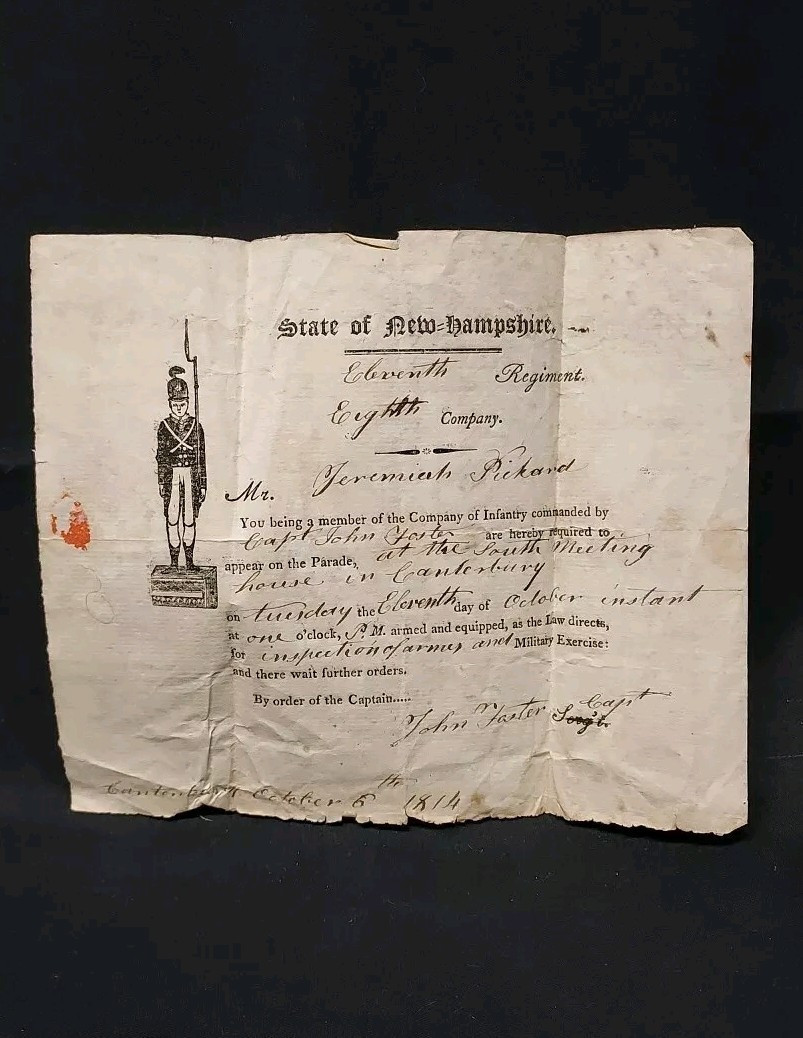 State of New=Hampshire.
Eleventh Regiment.
Eighth Company.
Mr. Jeremiah Pickard
You being a member of the Company of Infantry commanded by
Capt John Foster are hereby required to
appear on the Parade, at the South Meeting
house in Canterbury
on tuesday the Eleventh day of October instant
at one o'clock, P.M. armed and equipped, as the Law directs,
for inspection of armes and Military Exercise:
and there wait further orders.
By order of the Captain.....
John Foster Capt
Serg't.
Canterbury October 6th 1814